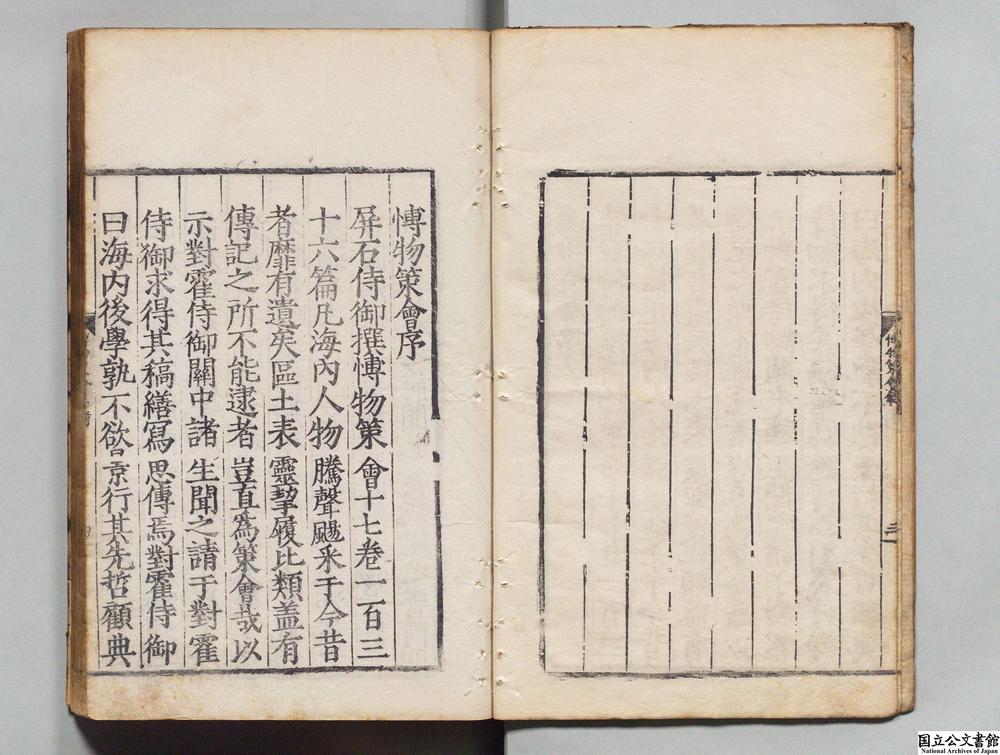 博物策會序
屏石侍御撰博物策會十七卷一百三
十六篇凡海內人物騰聲颺采于今昔
者靡有遺矣區土表靈挈履比類盖有
傳記之所不能逮者豈直爲策會哉以
示對霍侍御關中諸生聞之請于對霍
侍御求得其稿繕寫思傳焉對霍侍御
曰海內後學孰不欲景行其先哲顧典
国立公文書館
National Archives of Japan